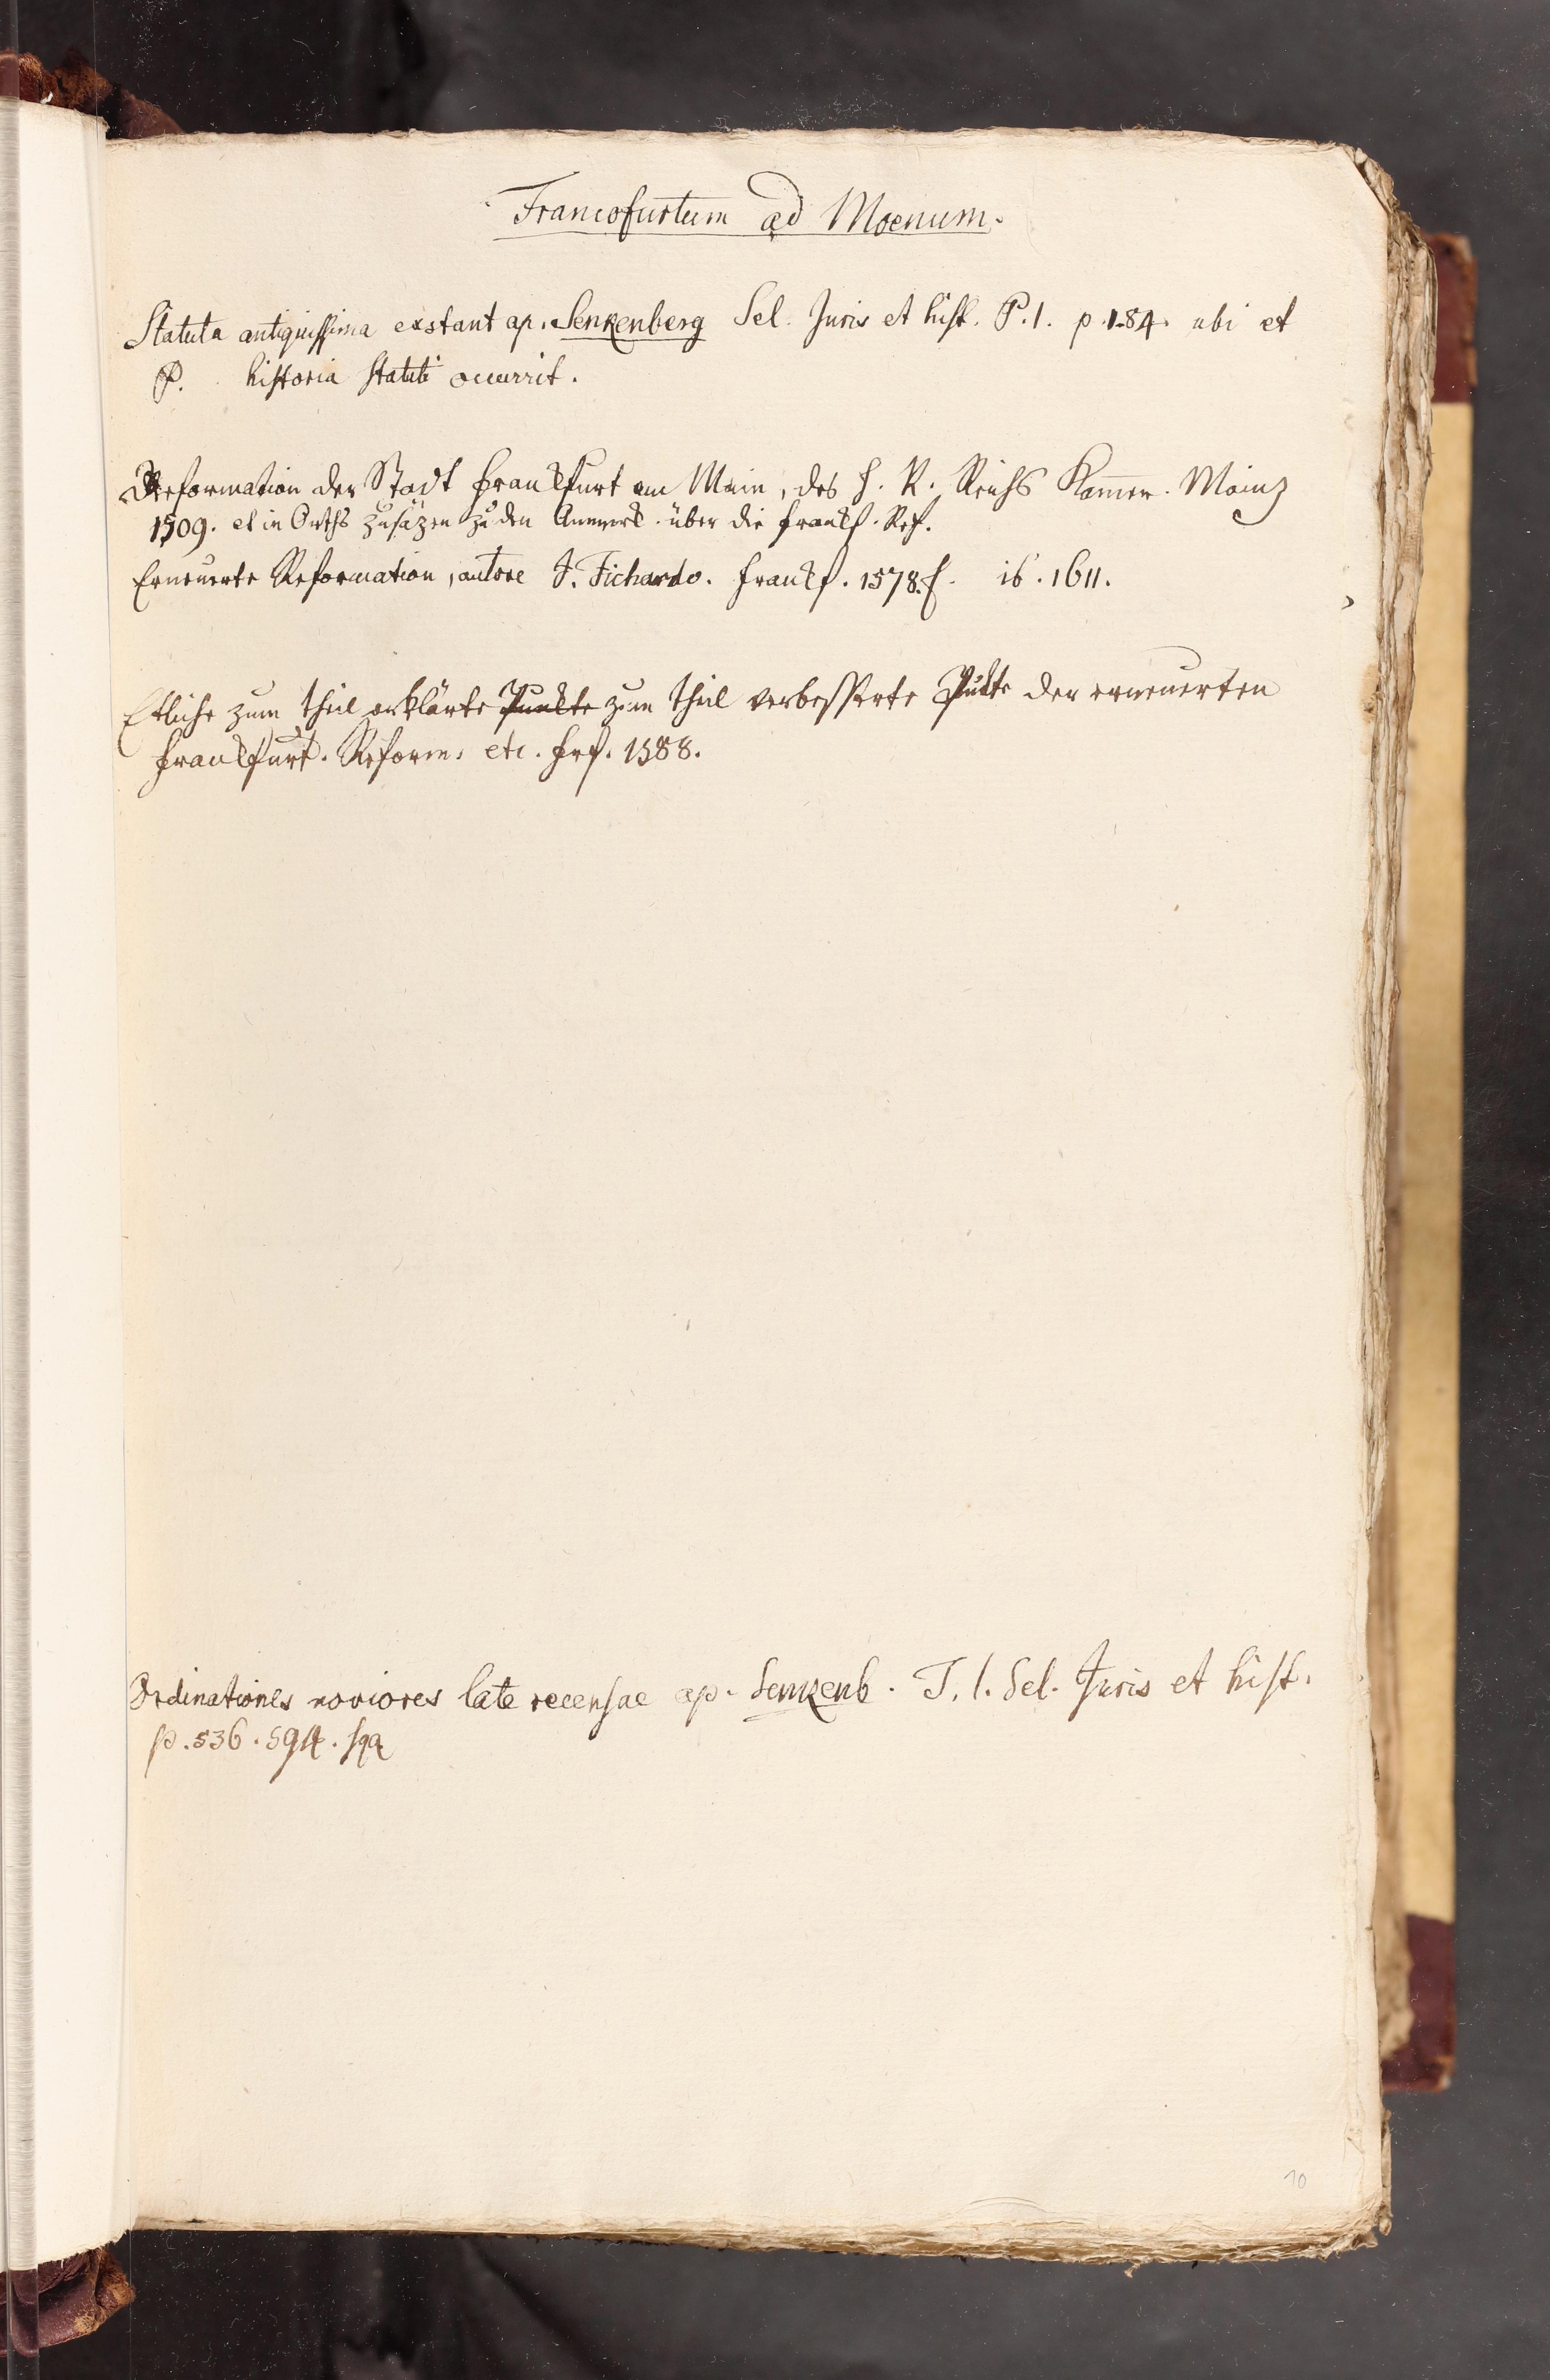 Francofurtum ad Moenum.
Statuta antiquissima exstant ap. Senkenberg Sel. Juris et hist. P. I. p. 1-84. ubi et
P. historia statuti occurrit.
Reformation der Stadt Frankfurt am Main, des H. R. Reichs Kammer. Mainz
1509. et in Orths Zusäzen zu den Anmerk. über die Frankf. Ref.
Erneuerte Reformation, autore J. Fichardo. Frankf. 1578. f. ib. 1611.
Etliche zum theil erklärte Punkte zum theil verbesserte Pukte der erneuerten
Frankfurt. Reform. etc. Frf. 1588.
Ordinationes noviores late recensae ap. Senkenb. T. I. Sel. Juris et hist.
p. 536. 594. sqq
10